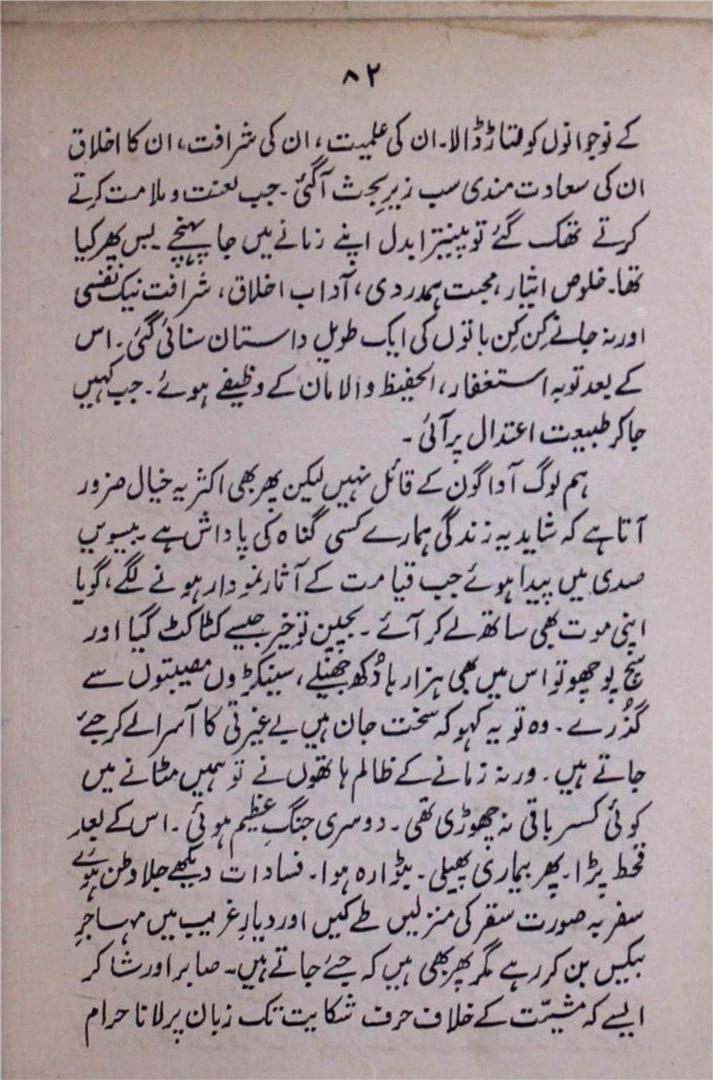 ۸۲
کے نوجوانوں کو لتاڑ ڈالا۔ ان کی علمیت، ان کی شرافت، ان کا اخلاق
ان کی سعادت مندی سب زیرِ بحث آگئی۔ جب لعنت و ملامت کرتے
کرتے تھک گئے تو پینترا بدل اپنے زمانے میں جا پہنچے۔ بس پھر کیا
تھا۔ خلوص ایثار، محبت ہمدردی، آداب اخلاق، شرافت نیک نفسی
اور نہ جانے کن کن باتوں کی ایک طویل داستان سنائی گئی۔ اس
کے بعد توبہ استغفار، الحفیظ والامان کے وظیفے ہوئے۔ جب کہیں
جا کر طبیعت اعتدال پر آئی۔
ہم لوگ آواگون کے قائل نہیں لیکن پھر بھی اکثر یہ خیال ضرور
آتا ہے کہ شاید یہ زندگی ہمارے کسی گناہ کی پاداش ہے۔ بیسویں
صدی میں پیدا ہوئے جب قیامت کے آثار نمودار ہونے لگے، گویا
اپنی موت بھی ساتھ لے کر آئے۔ بچپن تو خیر جیسے کٹا کٹ گیا اور
سچ پوچھو تو اس میں بھی ہزار ہا دُکھ جھیلے، سینکڑوں مصیبتوں سے
گذُرے۔ وہ تو یہ کہو کہ سخت جان ہیں بے غیرتی کا آسرا لے کر جیے
جاتے ہیں۔ ورنہ زمانے کے ظالم ہاتھوں نے تو ہمیں مٹانے میں
کوئی کسر باقی نہ چھوڑی تھی۔ دوسری جنگِ عظیم ہوئی۔ اس کے بعد
قحط پڑا۔ پھر بیماری پھیلی۔ بٹوارہ ہوا۔ فسادات دیکھے جلا وطن ہوئے
سفر بہ صورت سقر کی منزلیں طے کیں اور دیارِ غریب میں مہاجرِ
بیکیں بن کر رہے مگر پھر بھی ہیں کہ جیے جاتے ہیں۔ صابر اور شاکر
ایسے کہ مشیّت کے خلاف حرف شکایت تک زبان پر لانا حرام